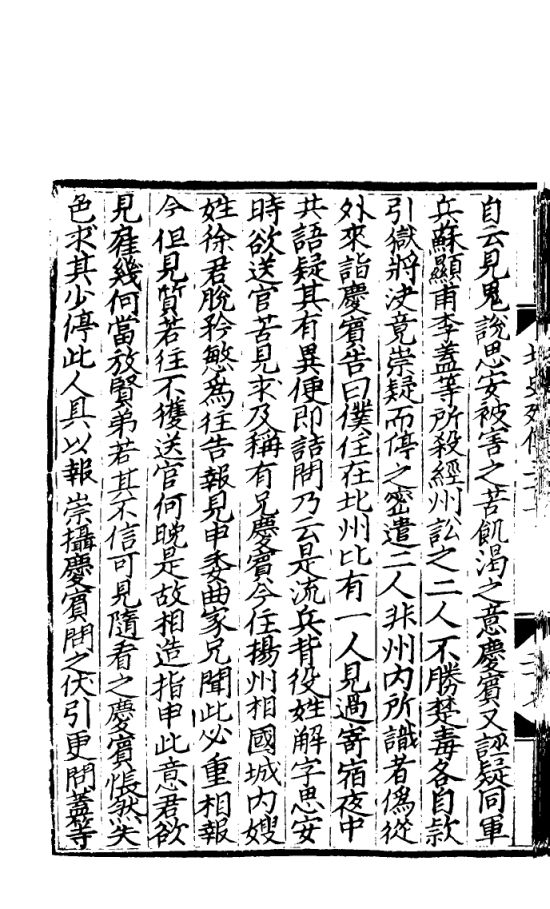 自云見鬼說思安被害之苦飢渴之意慶賓又誣疑同軍
兵蘇顯甫李蓋等所殺經州訟之二人不勝楚毒各自款
引獄將決竟崇疑而停之密遣二人非州内所識者偽從
外來詣慶賓告曰僕住在北州比有一人見過寄宿夜中
共語疑其有異便即詰問乃云是流兵背役姓解字思安
時欲送官苦見求及稱有兄慶賓今住揚州相國城内嫂
姓徐君脫矜慜為往告報見申委曲家兄聞此必重相報
今但見質若往不獲送官何晚是故相造指申此意君欲
見雇幾何當放賢弟若其不信可見隨看之慶賓悵然失
色求其少停此人具以報崇攝慶賓問之伏引更問蓋等